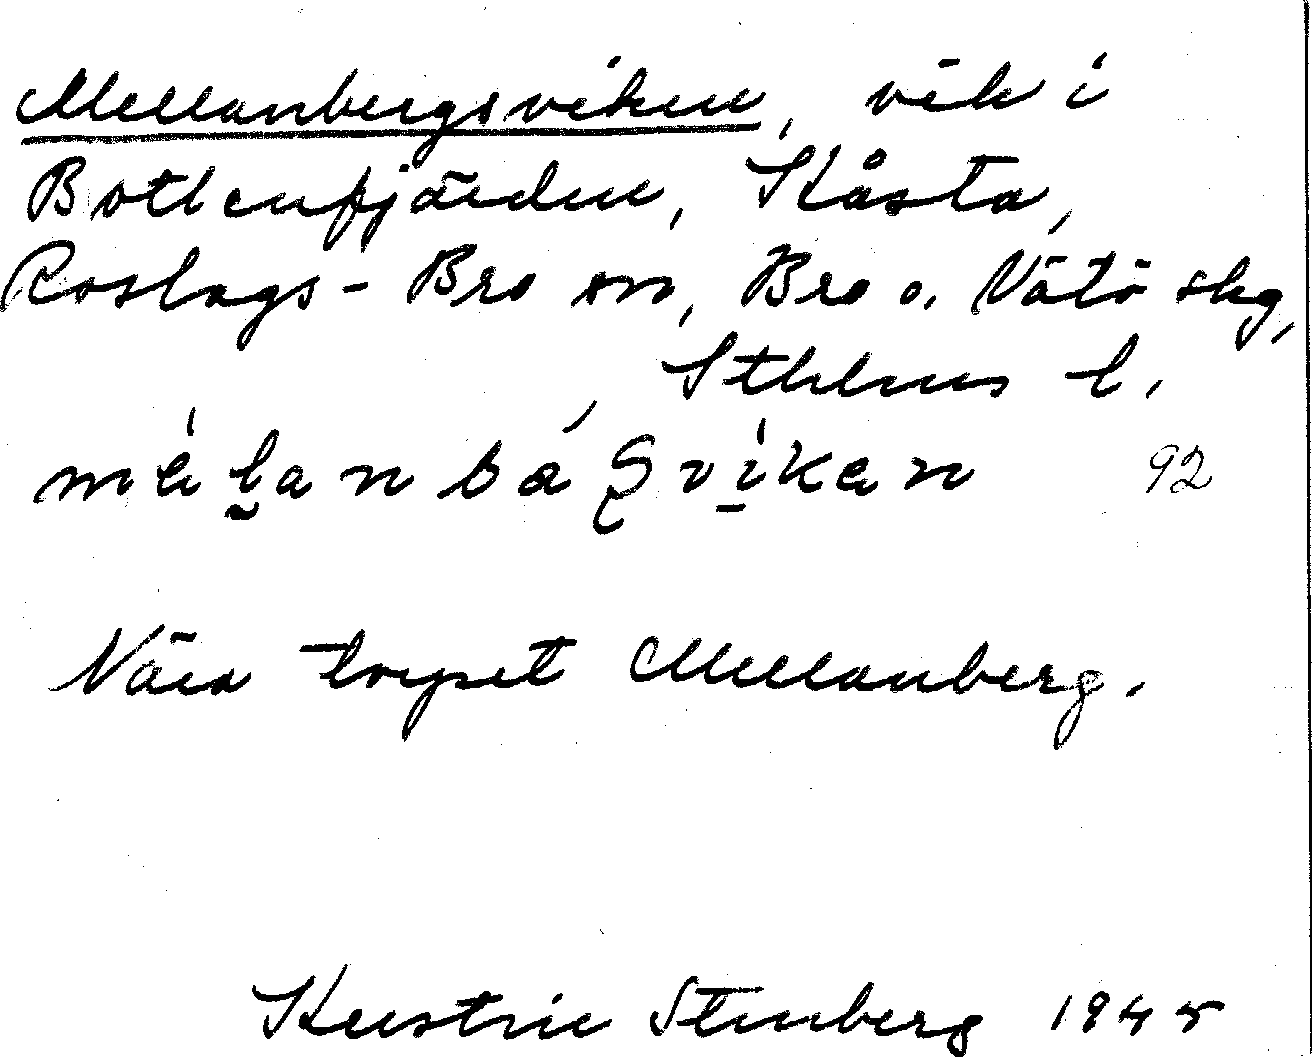 Mellanbergsviken, vik i
Bottenfjärden, Kåsta,
Roslags-Bro sn, Bro o. Vätö skg,
Sthlms l.
92
Nära torpet Mellanberg.
Stenberg 1945